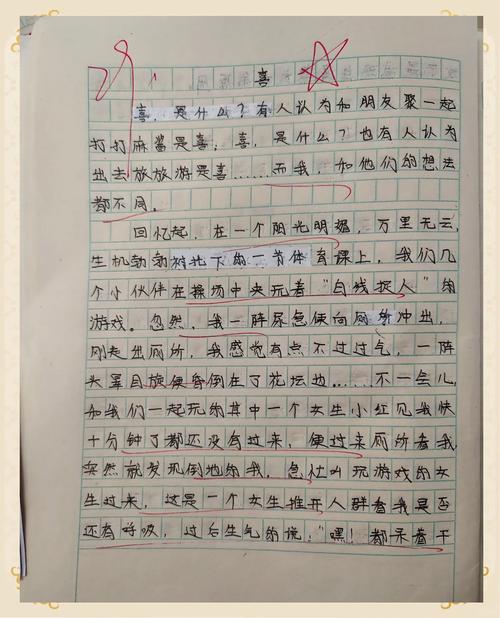 29
喜
喜，是什么？有人认为和朋友聚一起
打打麻酱是喜；喜，是什么？也有人认为
出去放放游是喜……而我，和他们的想法
都不同。
回忆起，在一个阳光明媚，万里无云，
生机勃勃树北下的一节体育课上，我们几
个小伙伴在操场中央玩着“白线捉人”的
游戏。忽然，我一阵尿急便向厕所冲出，
刚走出厕所，我感觉有点不过过气，一阵
头晕目旋便昏倒在了花坛边……不一会儿，
和我们一起玩的其中一个女生小红见我快
十分钟了都还没有过来，便过来厕所看我，
突然就发现倒地的我，急忙叫玩游戏的女
生过来，这是一个女生推开人群看我是否
还有呼吸，过后生气的说：“嘿！都呆着干